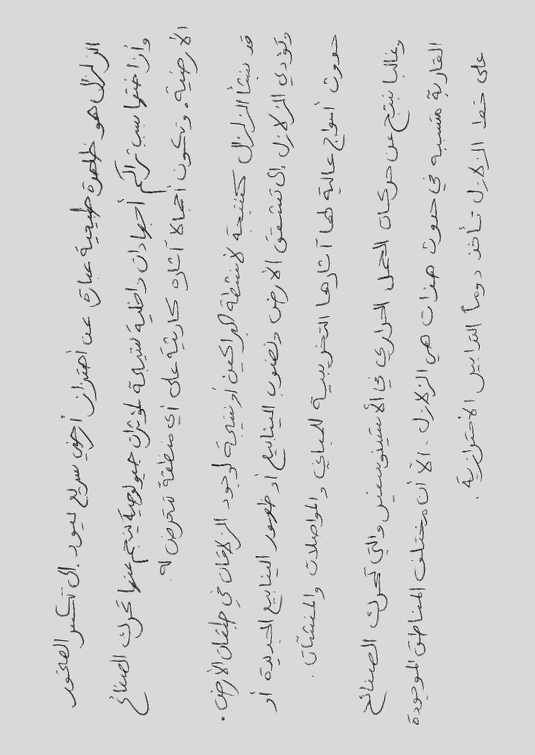 الزلزال هو ظاهرة طبيعية عبارة عن اهتزاز أرضي سريع يعود إلى تكسر الصخور
وإزاحتها بسبب تراكم أجهادات داخلية نتيجة لمؤثرات جيولوجية ينجم عنها تحرك الصفائح
الأرضية. وتكون أحيانا آثاره كارثية على أي منطقة تتعرض له.
قد ينشأ الزلزال كنتيجة لأنشطة البراكين أو نتيجة لوجود انزلاقات في طبقات الأرض.
وتؤدي الزلازل إلى تشقق الأرض ونضوب الينابيع أو ظهور الينابيع الجديدة أو
حدوث أمواج عالية لها آثارها التخريبية للمباني والمواصلات والمنشآت.
وغالبا ينتج عن حركات الحمل الحراري في الأسينوسفير والتي تحرك الصفائح
القارية متسببة في حدوث هزات هي الزلازل. الا أن مختلف المناطق الموجودة
على خط الزلازل تأخذ دوماً التدابير الاحترازية.